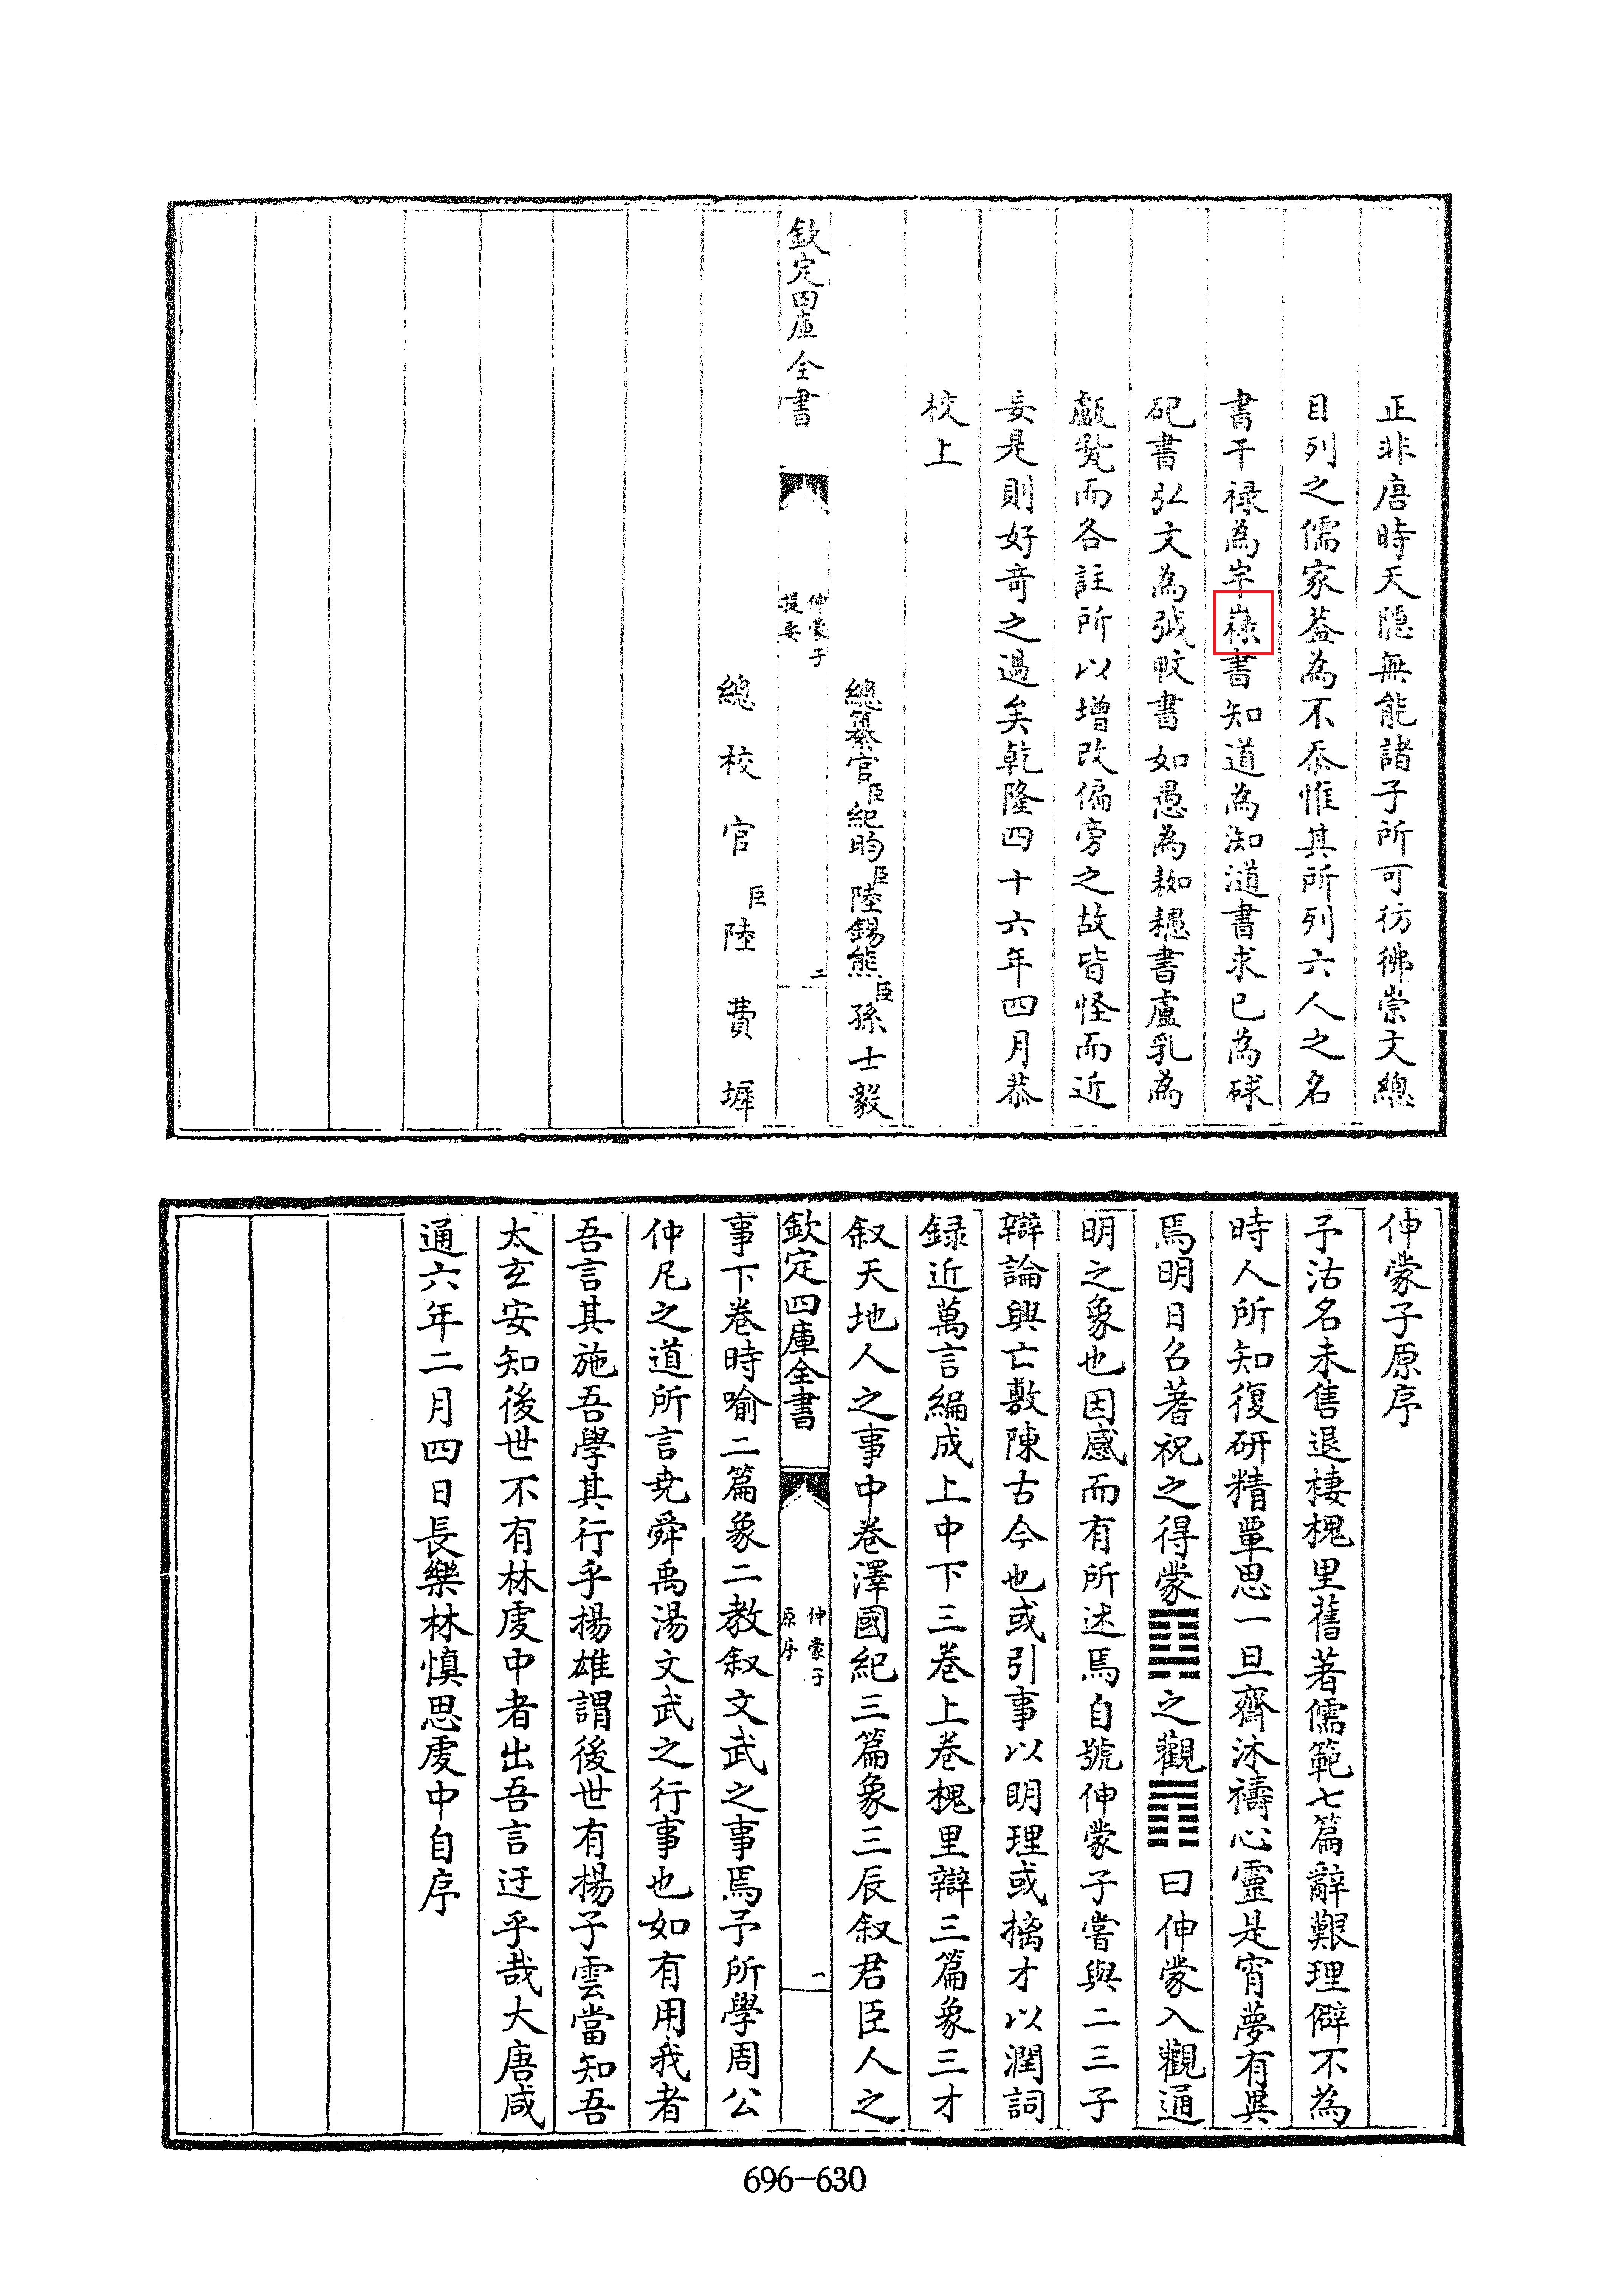 正非唐時天隱無能諸子所可彷彿崇文總
目列之儒家葢為不忝惟其所列六人之名
書干禄為書知道為書求已為
書弘文為書如愚為書盧乳為
而各註所以增改偏旁之故皆怪而近
妄是則好奇之過矣乾隆四十六年四月恭
校上
總纂官臣紀昀臣陸錫熊臣孫士毅
欽定四庫全書 伸蒙子提要 二
總校官臣陸費墀
伸蒙子原序
予沽名未售退棲槐里舊著儒範七篇辭艱理僻不為
時人所知復研精覃思一旦齋沐禱心靈是宵夢有異
焉明日召蓍祝之得蒙䷃之觀䷓曰伸蒙入觀通
明之象也因感而有所述焉自號伸蒙子嘗與二三子
辯論興亡敷陳古今也或引事以明理或摛才以潤詞
録近萬言編成上中下三卷上卷槐里辯三篇象三才
叙天地人之事中卷澤國紀三篇象三辰叙君臣人之
欽定四庫全書 伸蒙子原序 一
事下卷時喻二篇象二教叙文武之事焉予所學周公
仲尼之道所言堯舜禹湯文武之行事也如有用我者
吾言其施吾學其行乎揚雄謂後世有揚子雲當知吾
太玄安知後世不有林虔中者出吾言迂乎哉大唐咸
通六年二月四日長樂林慎思虔中自序
696-630